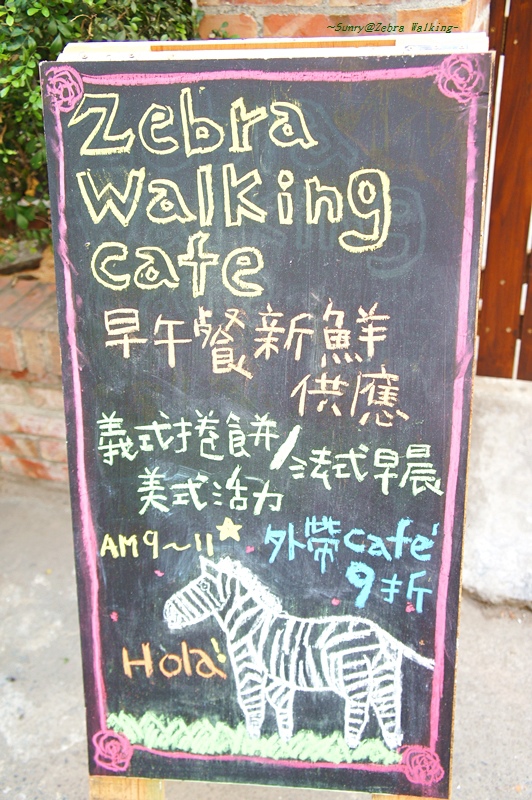 ~Sunry@Zebra Walking~
Zebra
Walking
cafe
早午餐新鮮
供應
義式捲餅/法式早晨
美式活力
AM9~11
外帶café
9折
Hola!